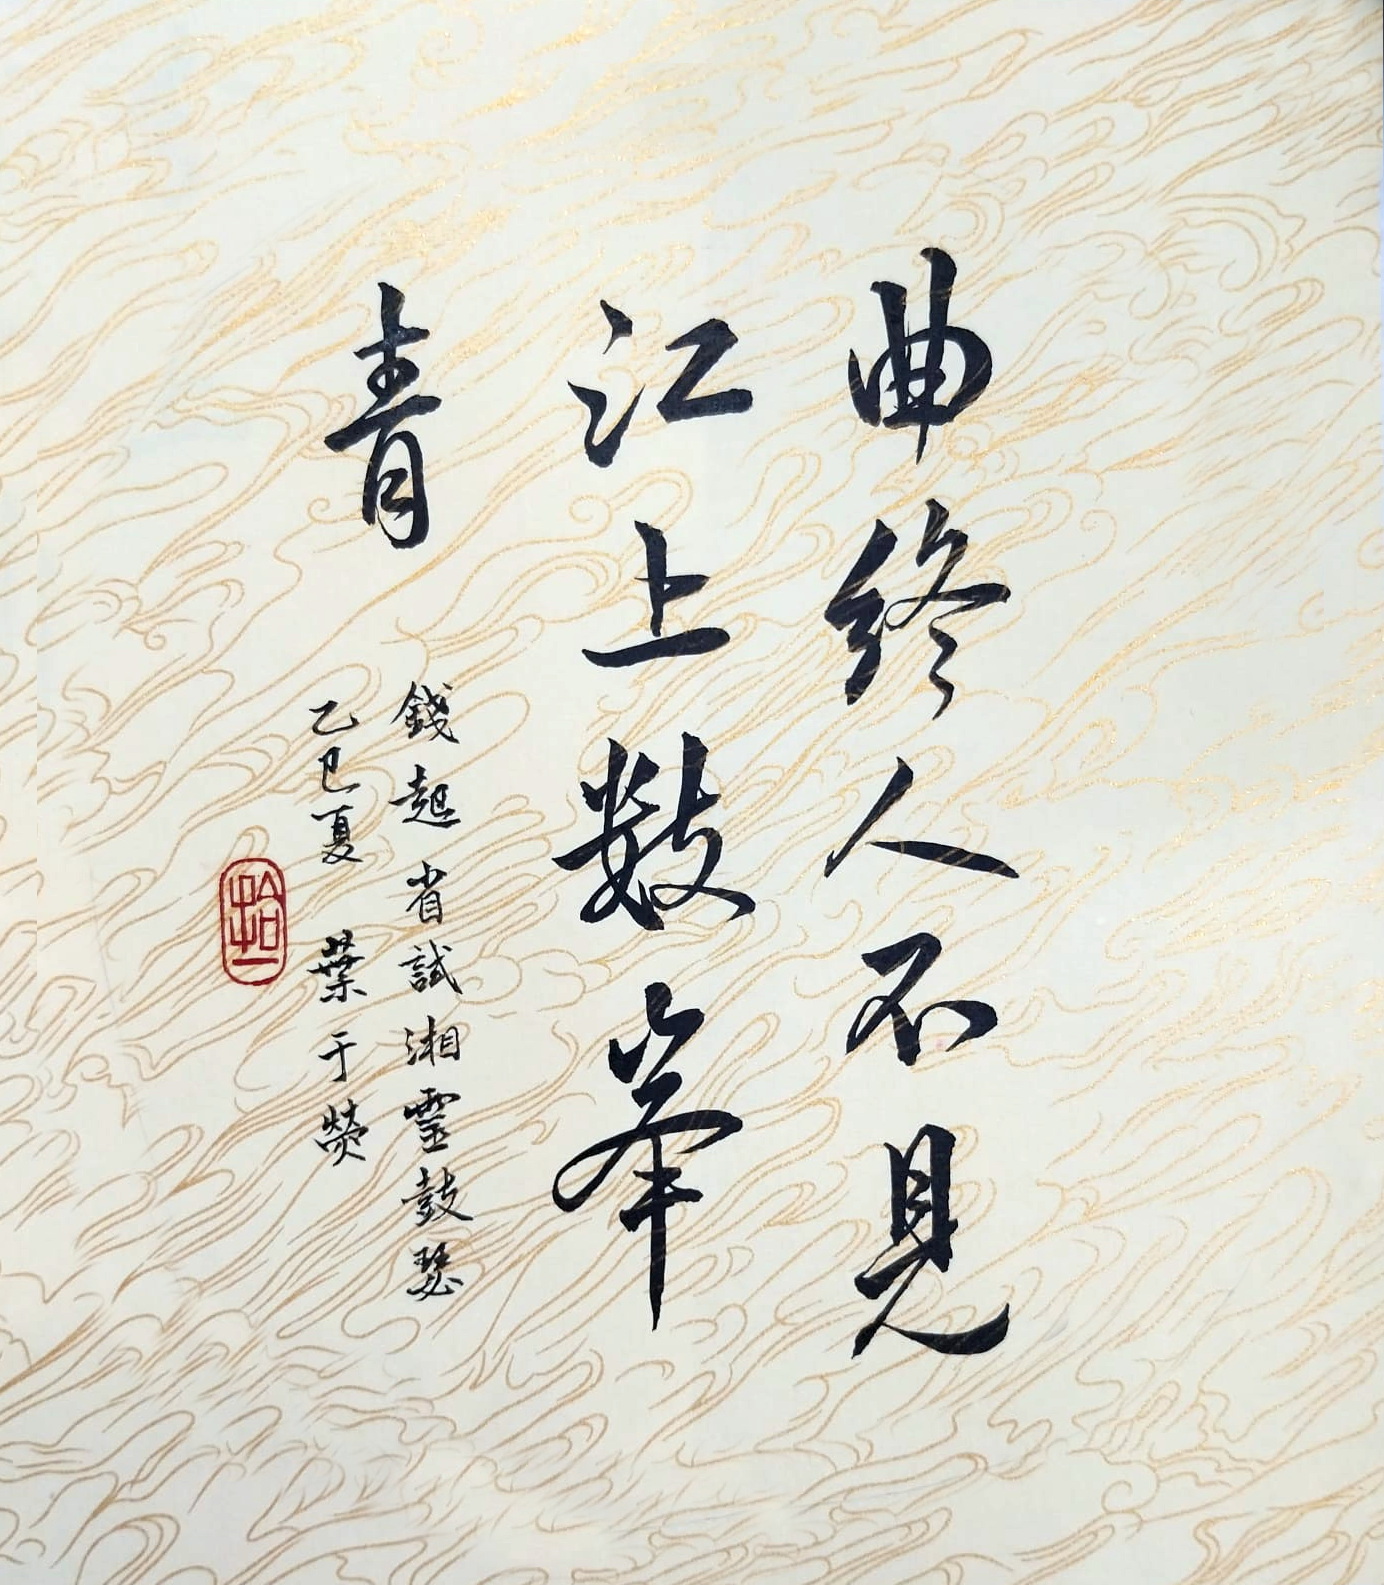 曲終人不見
江上數峯
青
錢起省試湘靈鼓瑟
乙巳夏 葉于熒